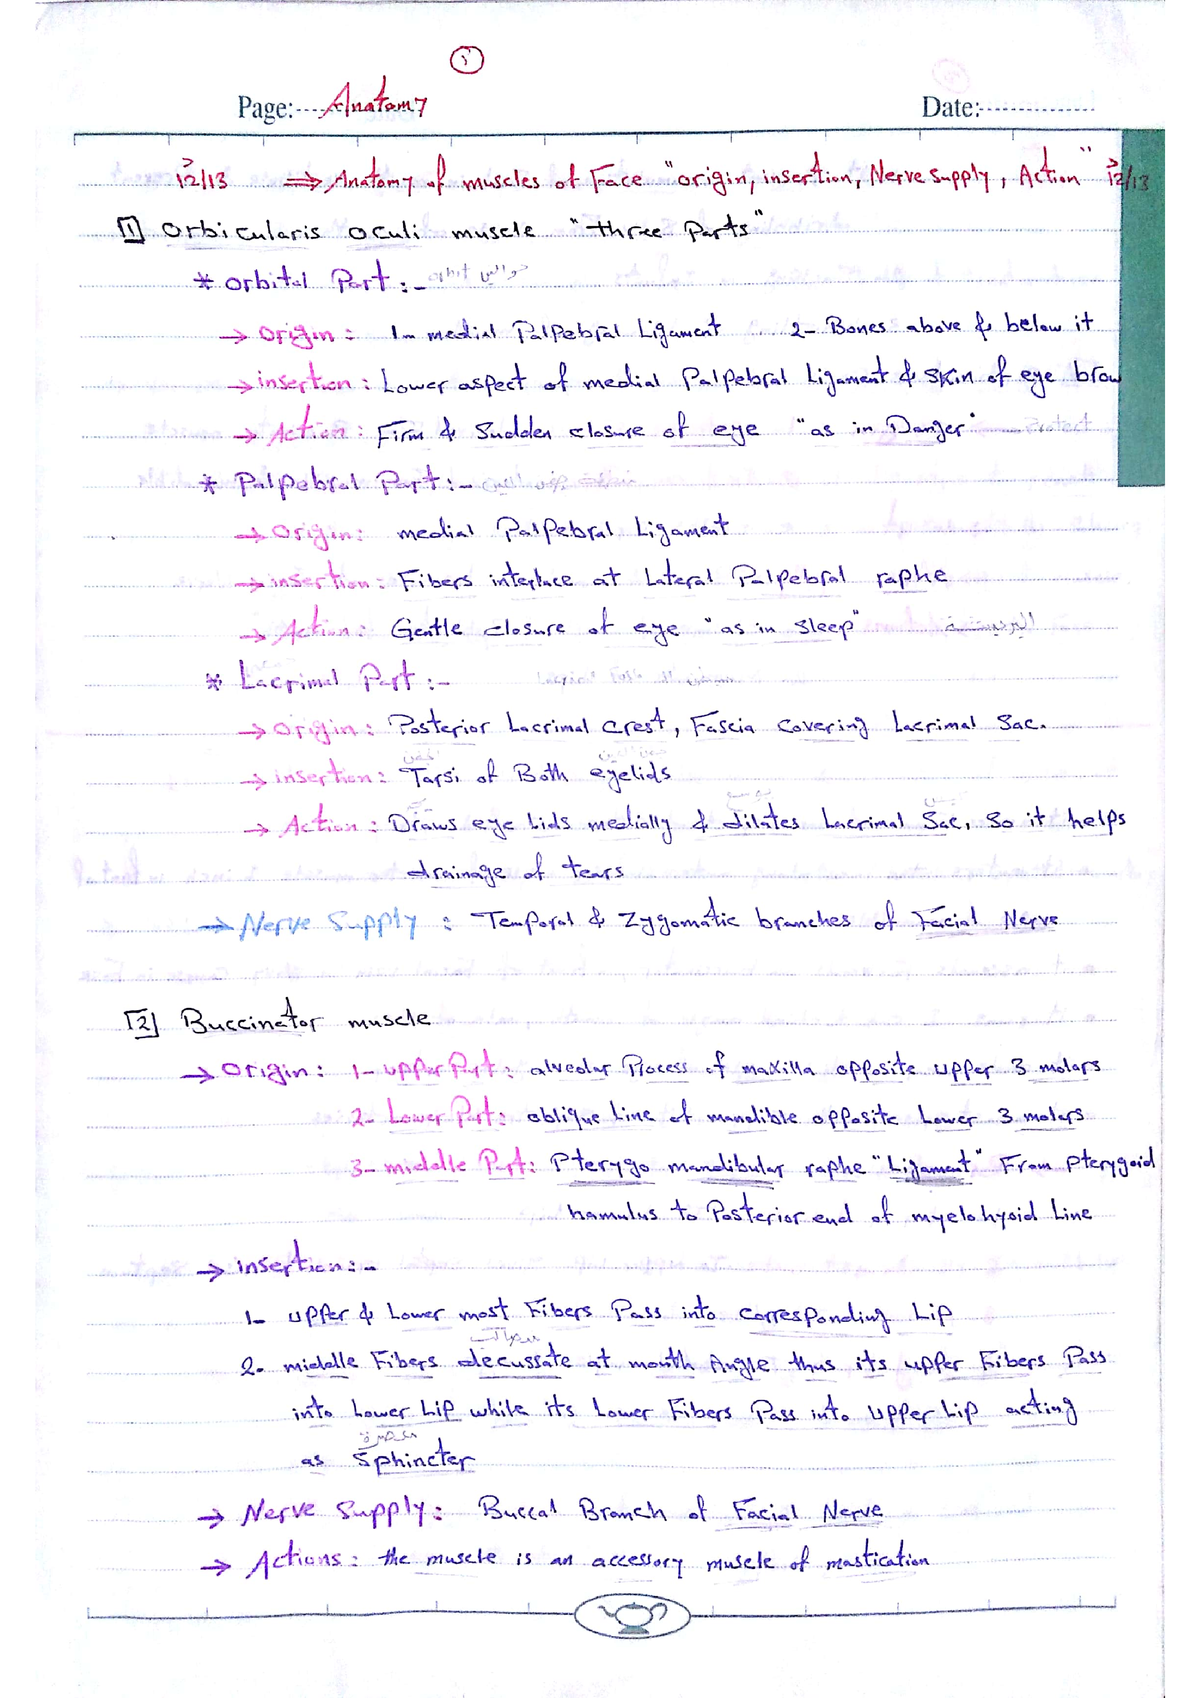 ١
Page:----Anatomy
Date:---------------
12/13 ⇒ Anatomy of muscles of Face "origin, insertion, Nerve supply, Action" 12/13
[1] orbicularis oculi muscle "three Parts"
* orbital Part :- orbit حوالين
→ Origin : 1- medial Palpebral Ligament 2- Bones above & below it
→ insertion : Lower aspect of medial Palpebral Ligament & skin of eye brow
→ Action : Firm & Sudden closure of eye "as in Danger" Protect
* Palpebral Part :-
→ Origin : medial Palpebral Ligament
→ insertion : Fibers interlace at Lateral Palpebral raphe
→ Action : Gentle closure of eye "as in sleep"
* Lacrimal Part :-
→ Origin : Posterior Lacrimal crest, Fascia covering Lacrimal Sac.
→ insertion : Tarsi of Both eyelids
→ Action : Draws eye lids medially & dilates Lacrimal Sac, So it helps
drainage of tears
→ Nerve Supply : Temporal & Zygomatic branches of Facial Nerve
[2] Buccinator muscle
→ Origin : 1- upper Part : alveolar Process of maxilla opposite upper 3 molars
2- Lower Part : oblique Line of mandible opposite Lower 3 molars
3- middle Part : Pterygo mandibular raphe "Ligament" From Pterygoid
hamulus to Posterior end of myelohyoid Line
→ insertion :-
1- upper & Lower most Fibers Pass into corresponding Lip
2- middle Fibers decussate at mouth Angle thus its upper Fibers Pass
into Lower Lip while its Lower Fibers Pass into upper Lip acting
معصرة
as Sphincter
→ Nerve Supply : Buccal Branch of Facial Nerve
→ Actions : the muscle is an accessory muscle of mastication